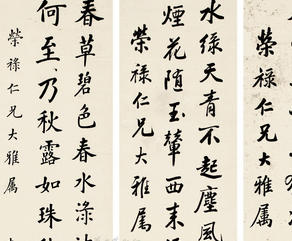 榮祿仁兄大雅属
水緑天青不起塵風
煙花随玉輦西来
榮祿仁兄大雅属
春草碧色春水渌
何至乃秋露如珠
榮祿仁兄大雅属